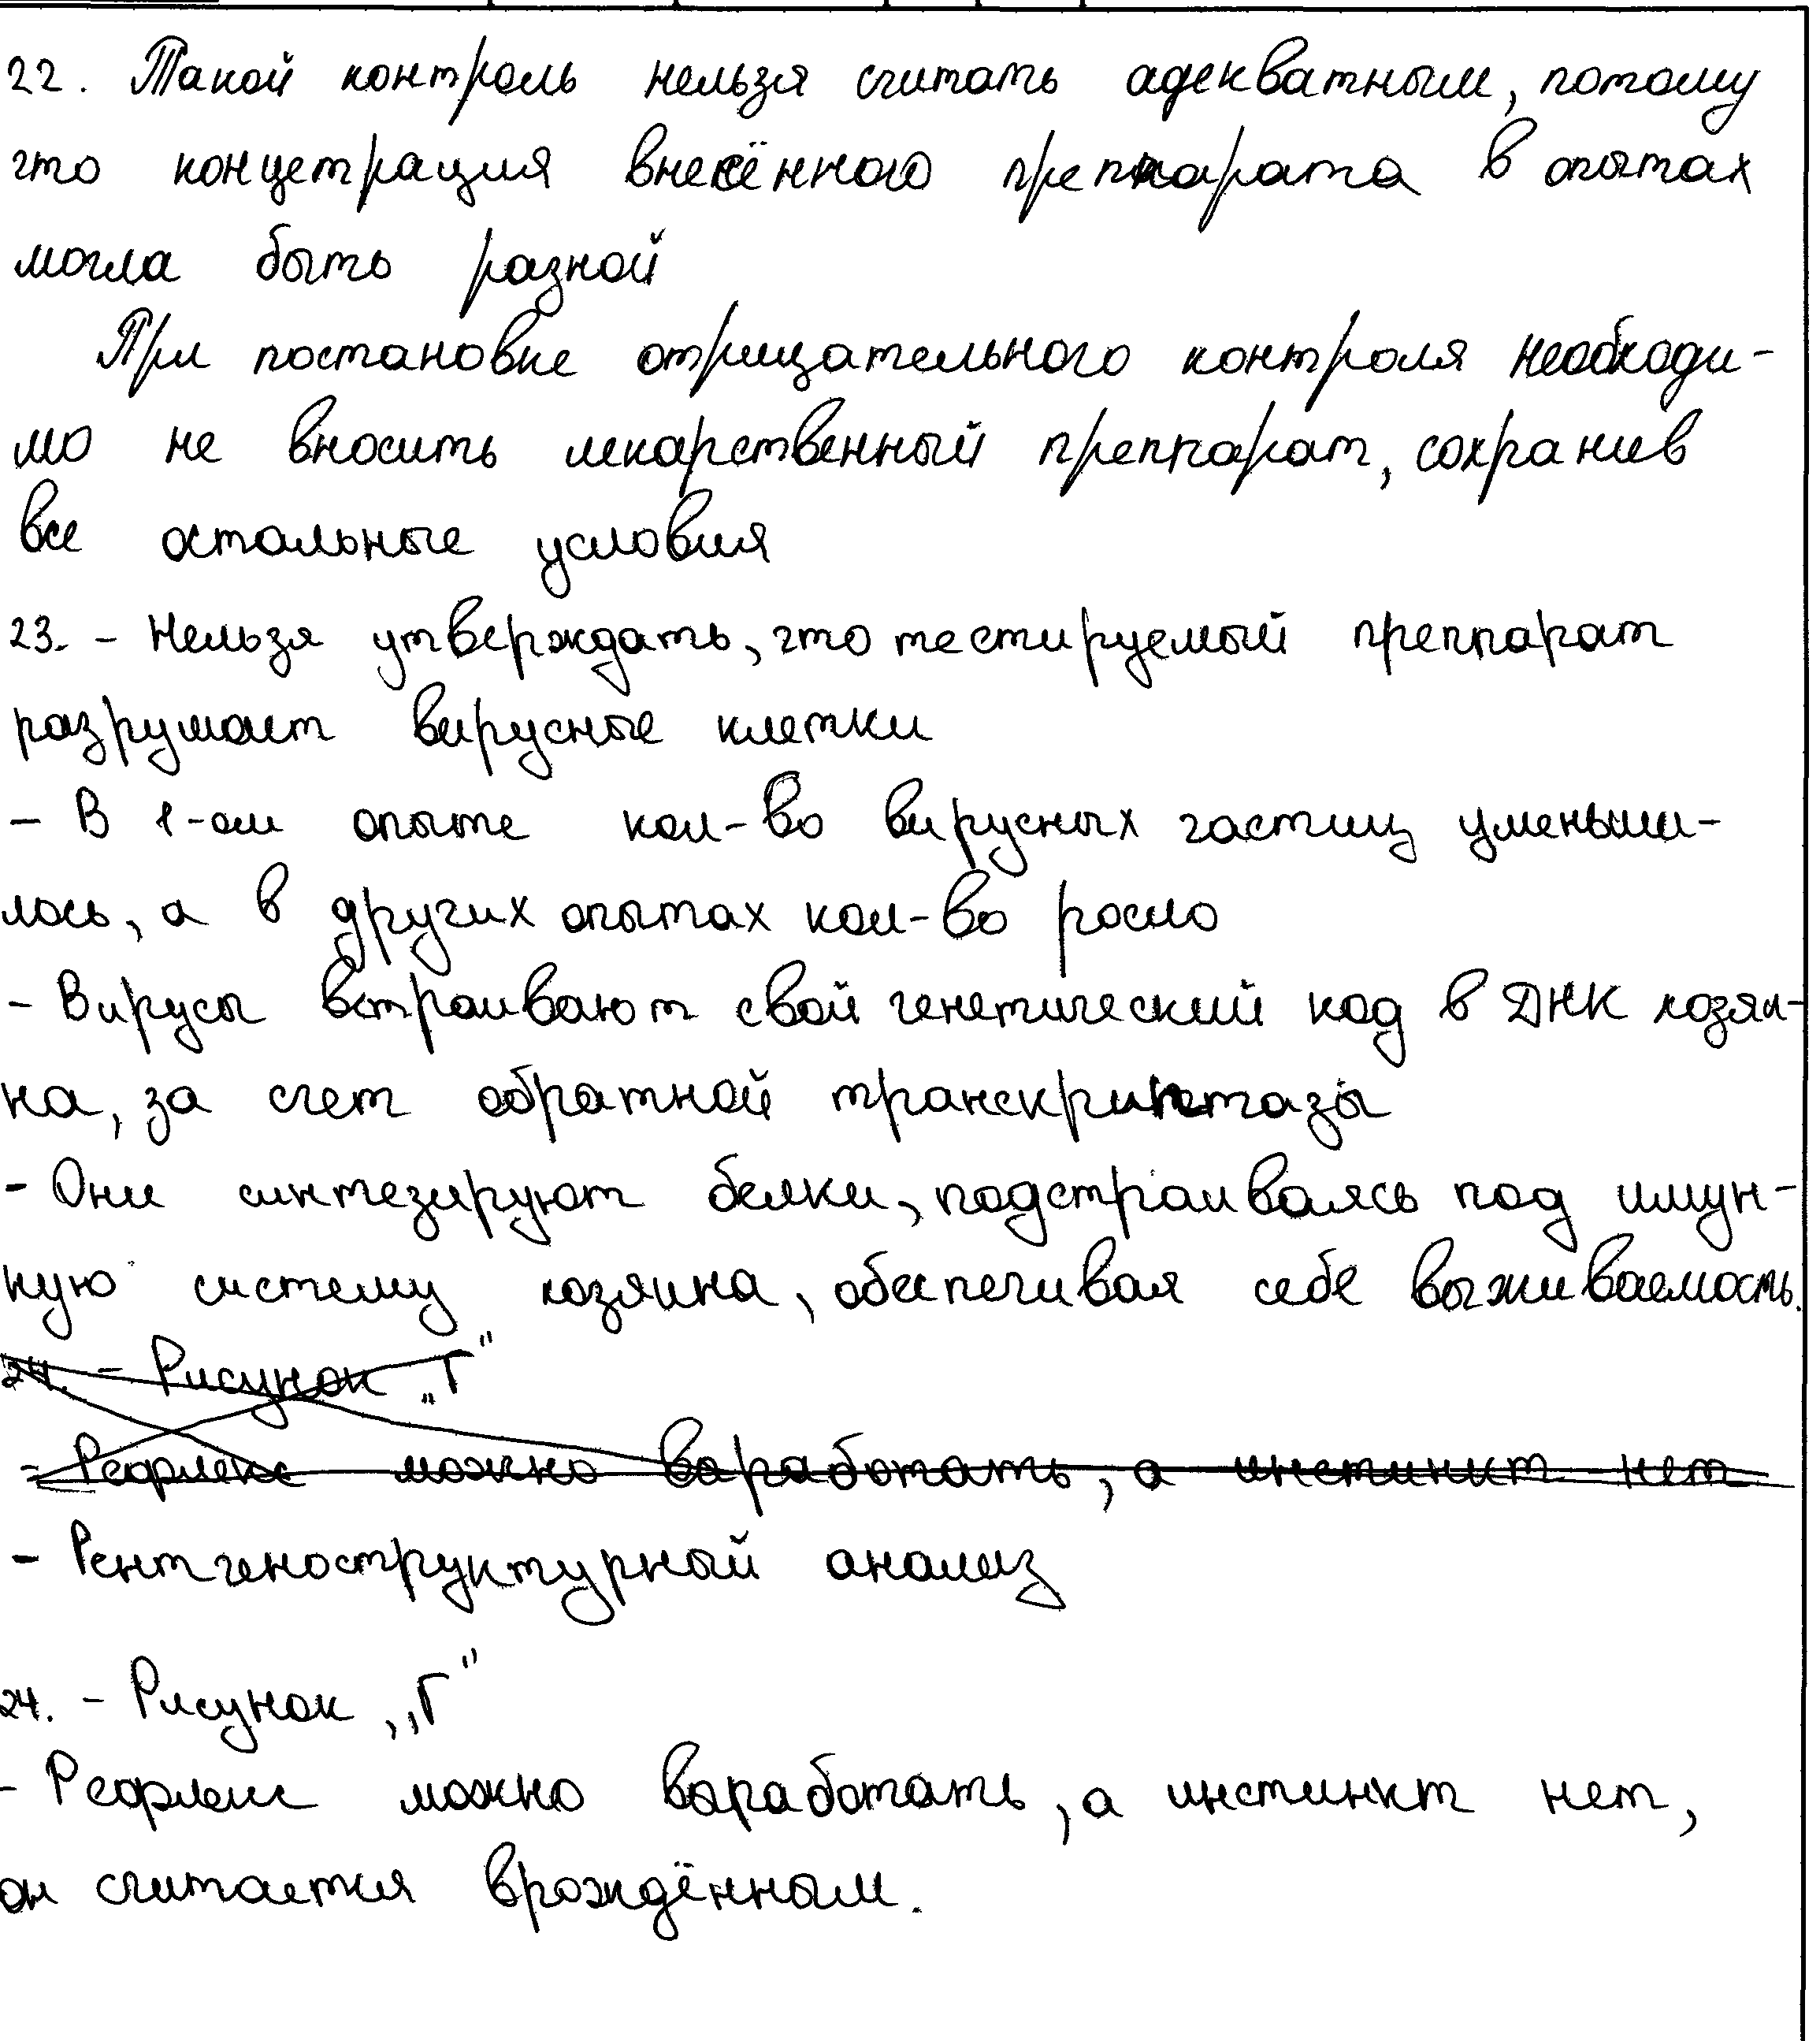 22. Такой контроль нельзя считать адекватным, потому
что концетрация внесённого преппарата в опытах
могла быть разной
При постановке отрицательного контроля необходи-
мо не вносить лекарственный преппарат, сохранив
все остальные условия
23. - Нельзя утверждать, что тестируемый преппарат
разрушает вирусные клетки
- В 1-ом опыте кол-во вирусных частиц уменьши-
лось, а в других опытах кол-во росло
- Вирусы встраивают свой генетический код в ДНК хозяи-
на, за счет обратной транскриптазы
- Они синтезируют белки, подстраиваясь под имун-
ную систему хозяина, обеспечивая себе выживаемость.
24. - Рисунок „Г"
- Рефлекс можно варабо­тать, а инстинкт нет
- Рентгеноструктурный анализ
24. - Рисунок „Г"
- Рефлекс можно выработать, а инстинкт нет,
он считается врождённым.